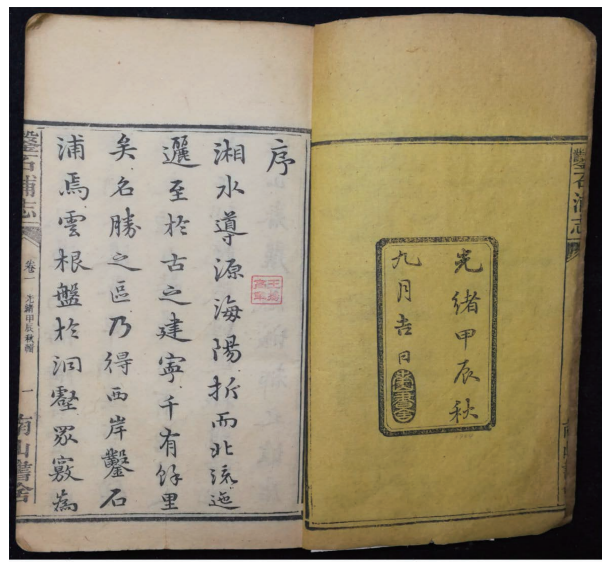 光緒甲辰秋
九月吉日
鑿石浦志
序
湘水導源海陽折而北流迤
邐至於古之建寧千有餘里
矣名勝之區乃得西岸鑿石
浦焉雲根盤於洞壑眾竅為
鑿石浦志
卷一
光緒甲辰秋鐫
一
南山書舍